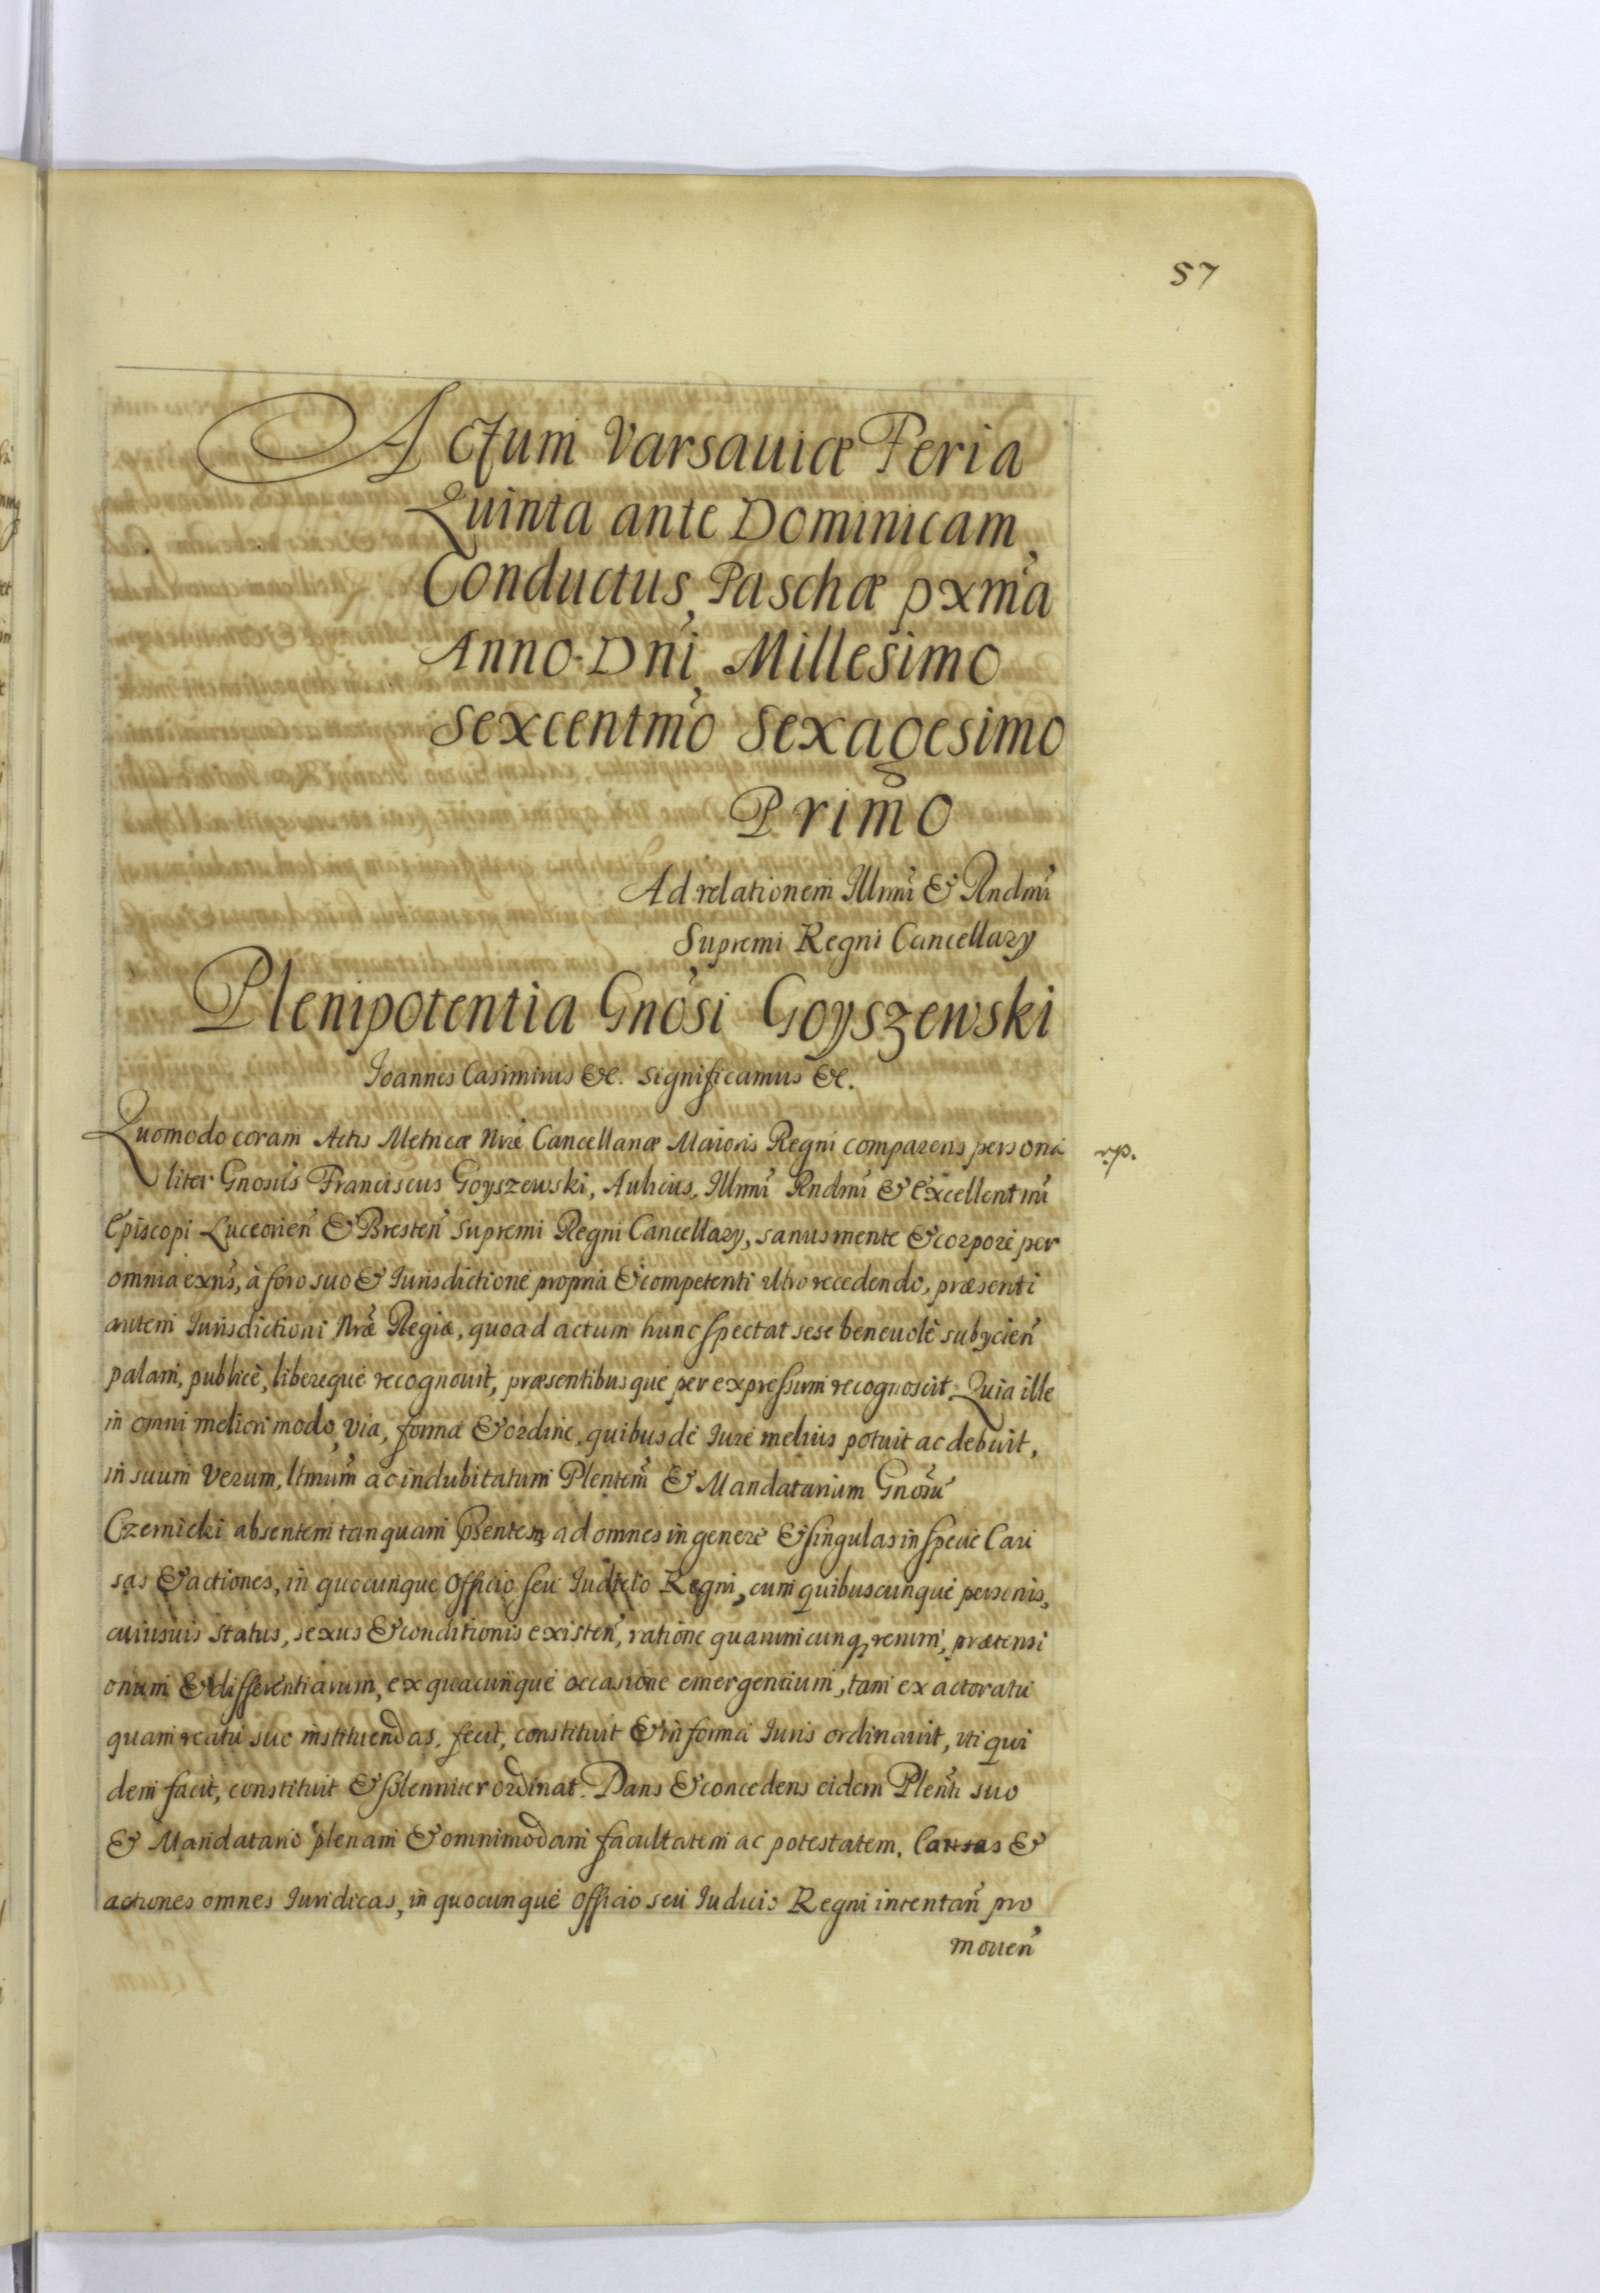 57
Actum Varsauiæ Feria
Quinta ante Dominicam
Conductus Paschæ pxma
Anno Dni Millesimo
Sexcentmo Sexagesimo
Primo
Ad relationem Illmi & Rndmi
Supremi Regni Cancellary
Plenipotentia Gnosi Goyszewski
Joannes Casimirus &c. significamus &c.
Quomodo coram Actis Metricæ Nræ Cancellariæ Maioris Regni comparens persona
r.p.
liter Gnosus Franciscus Goyszewski, Aulicus Illmi Rndmi & Excellentmi
Episcopi Luceorien & Bresten Supremi Regni Cancellary, sanus mente & corpore per
omnia exns, à foro suo & Iurisdictione propria & competenti ultro recedendo, præsenti
autem Iurisdictioni Nræ Regiæ, quoad actum hunc spectat sese beneuolè subycien
palam, publicè, libereque recognouit, præsentibusque per expressum recognoscit. Quia ille
in omni meliori modo, via, forma & ordine, quibus de Iure melius potuit ac debuit,
in suum verum, ltmum ac indubitatum Plentem & Mandatarium Gnosu
Czernicki absentem tanquam psentem ad omnes in genere & singulas in specie Cau
sas & actiones, in quocunque Officio seu Iudicio Regni, cum quibuscunque personis,
cuiusuis status, sexus & conditionis existen, ratione quarumcunq, rerum, prætensi
onum & differentiarum, ex quacunque occasione emergentium, tam ex actoratu
quam reatu suo instituendas, fecit, constituit & in forma Iuris ordinauit, uti qui
dem facit, constituit & solenniter ordinat. Dans & concedens eidem Plenti suo
& Mandatario plenam & omnimodam facultatem ac potestatem, Causas &
actiones omnes Iuridicas, in quocunque Officio seu Iudicio Regni intentan pro
mouen